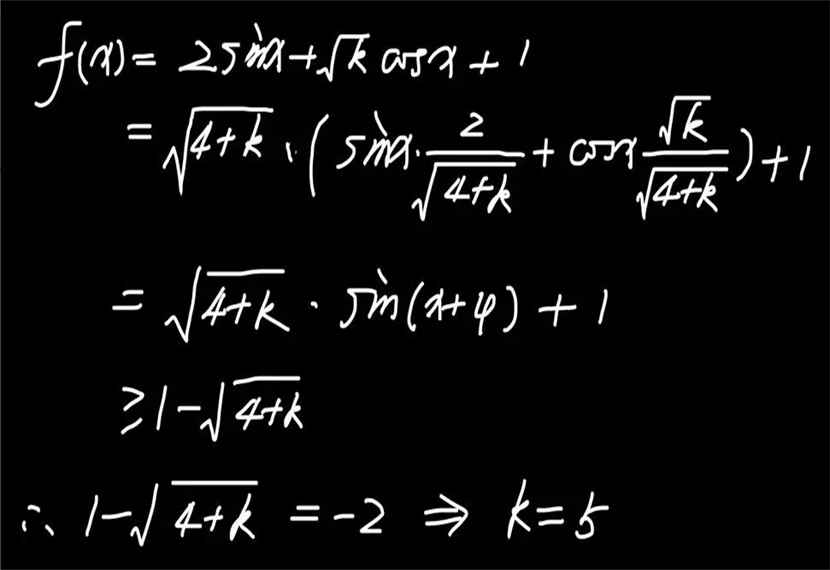 f(x) = 2sinx + √k cosx + 1
= √(4+k) · (sinx · 2/√(4+k) + cosx √k/√(4+k)) + 1
= √(4+k) · sin(x+φ) + 1
≥ 1 - √(4+k)
∴ 1 - √(4+k) = -2 ⇒ k = 5